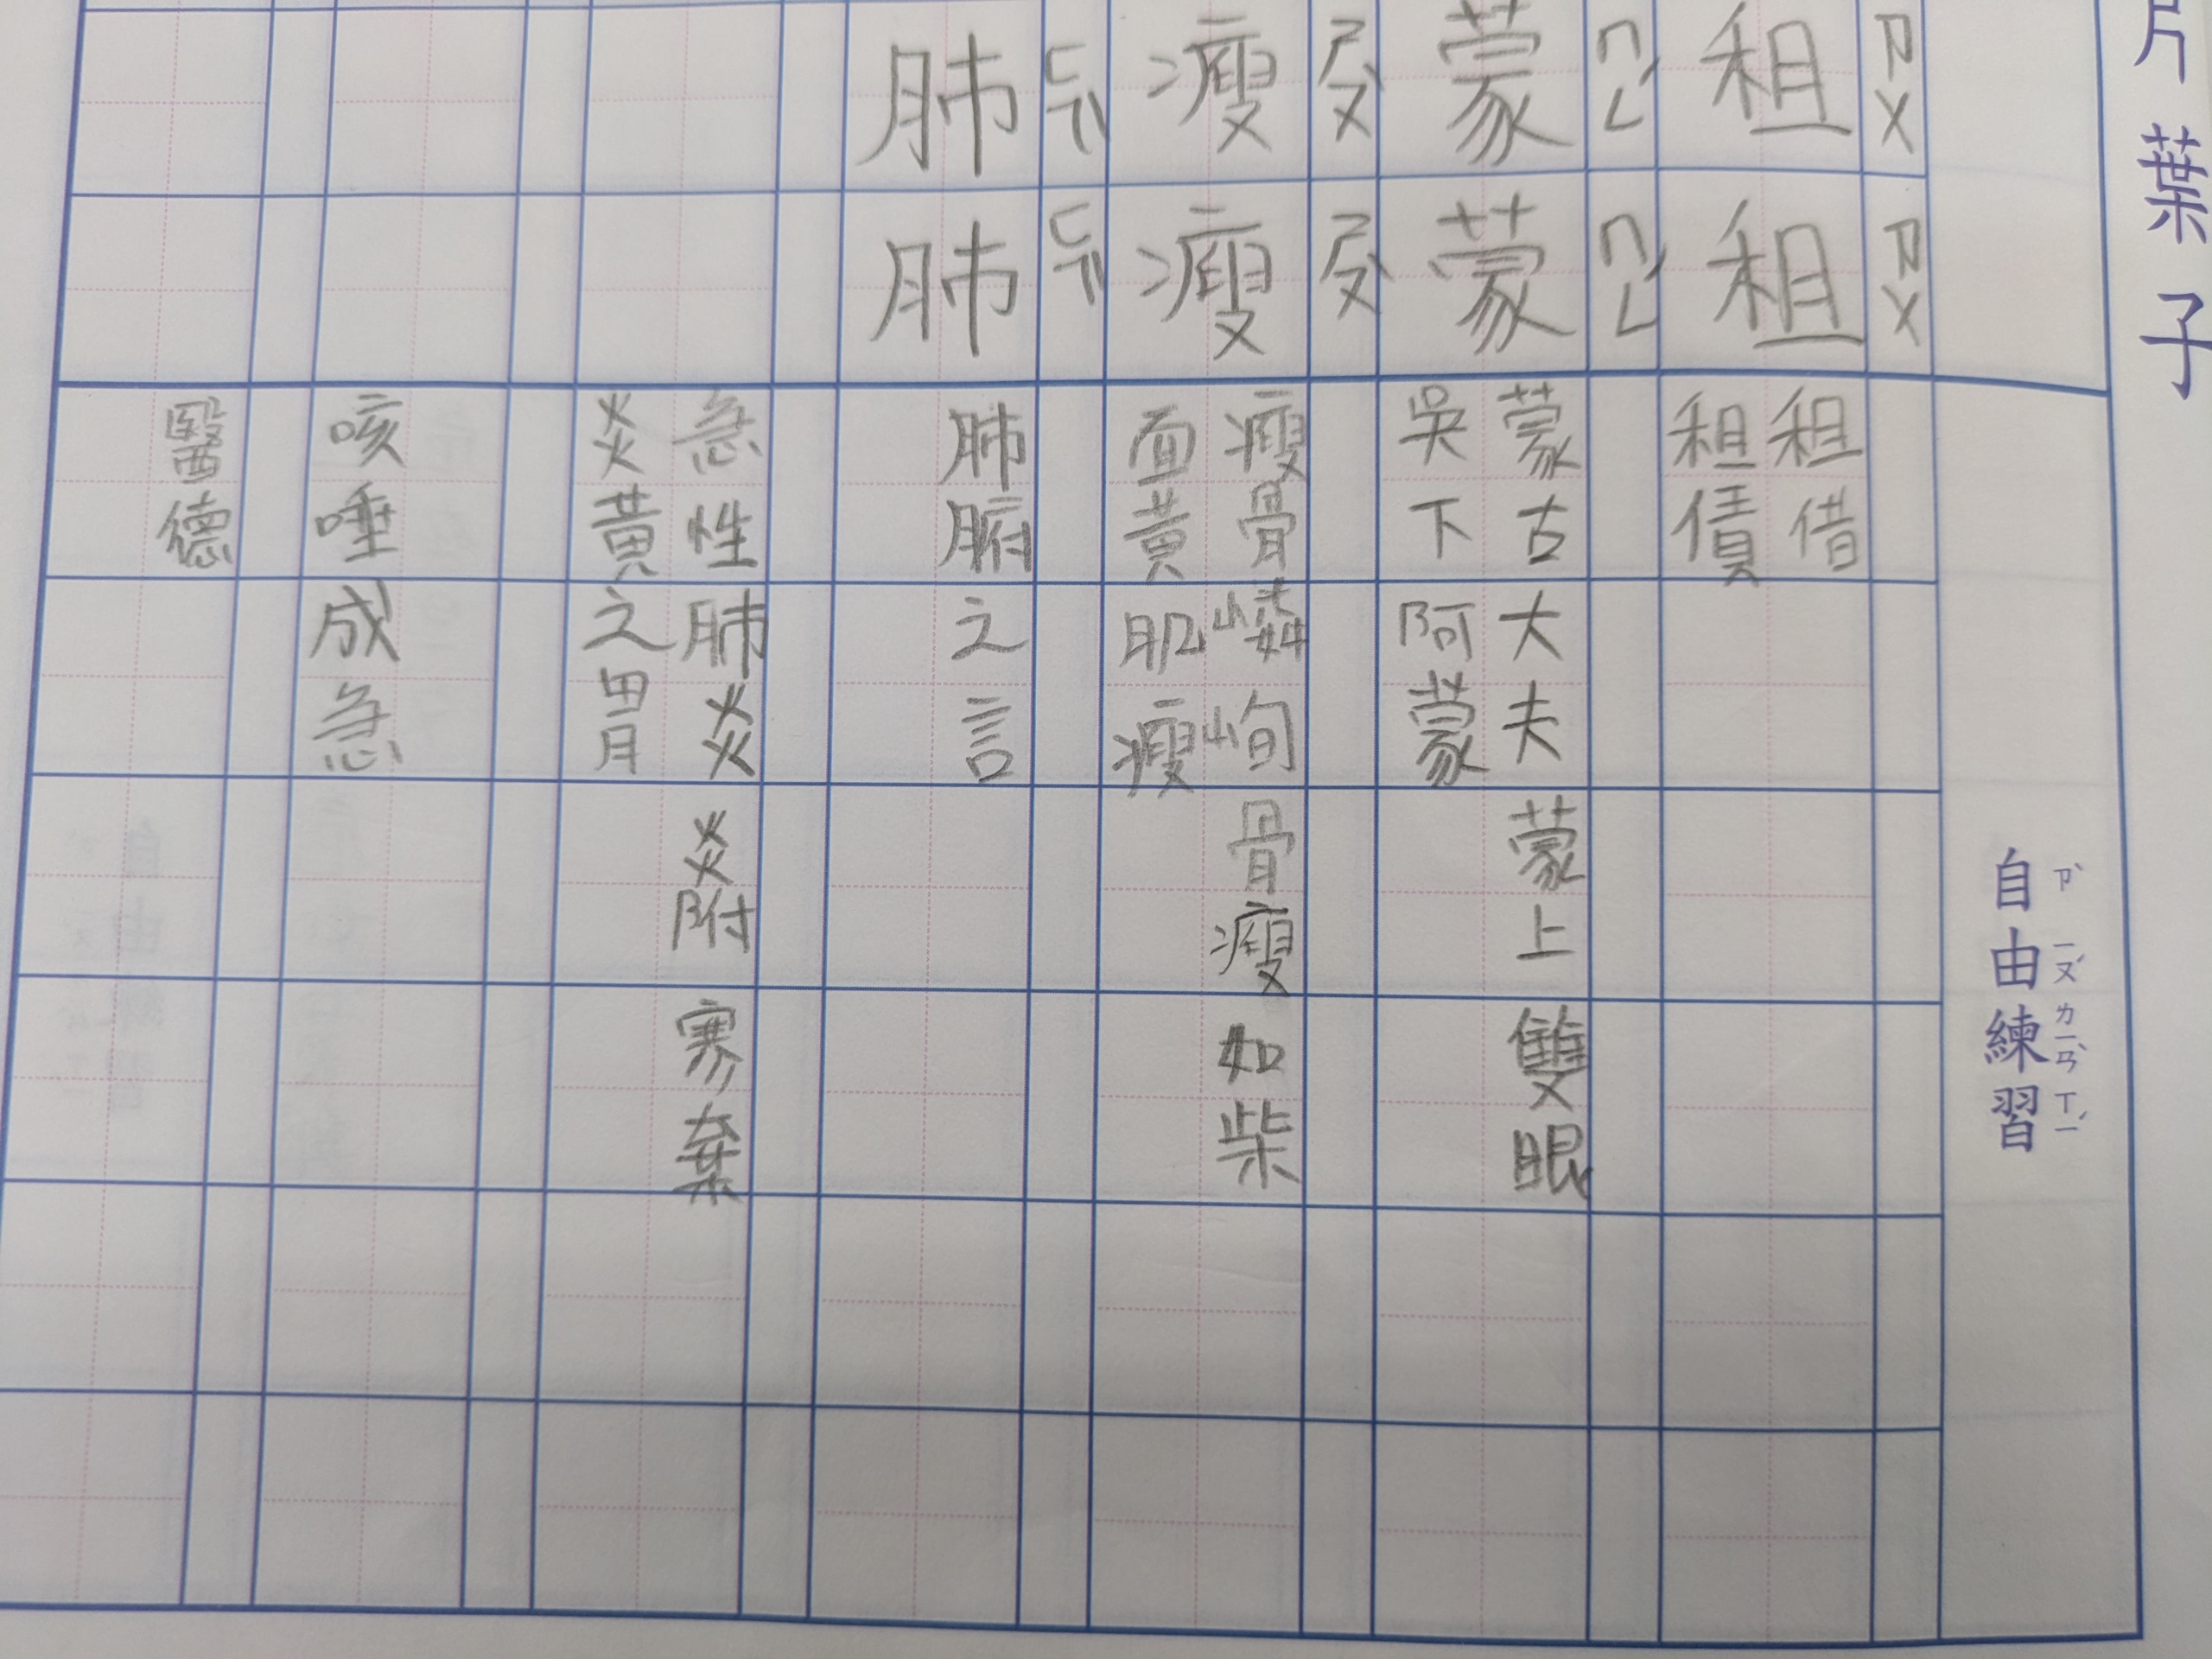 片葉子
自由練習
ㄗˋ ㄧㄡˊ ㄌㄧㄢˋ ㄒㄧˊ
ㄗㄨ
ㄗㄨ
租
租
租借
租債
ㄇㄥˊ
ㄇㄥˊ
蒙
蒙
蒙古大夫蒙上雙眼
吳下阿蒙
ㄕㄡˋ
ㄕㄡˋ
瘦
瘦
瘦骨嶙峋骨瘦如柴
面黃肌瘦
ㄈㄟˋ
ㄈㄟˋ
肺
肺
肺腑之言
急性肺炎炎附寒棄
炎黃之冑
咳唾成急
醫德